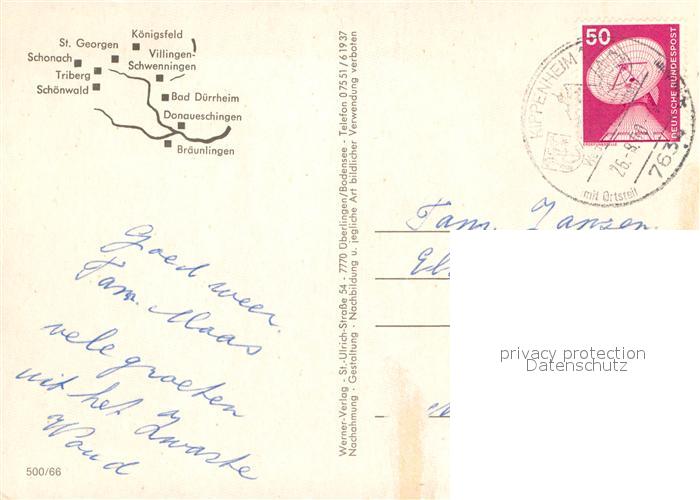 Königsfeld
St. Georgen
Villingen-
Schwenningen
Schonach
Triberg
Schönwald
Bad Dürrheim
Donaueschingen
Bräunlingen
Goed weer.
Fam. Maas
vele groeten
uit het Zwarte
Woud
500/66
Werner-Verlag - St.-Ulrich-Straße 54 - 7770 Überlingen/Bodensee - Telefon 07551/61937
Nachahmung - Gestaltung - Nachbildung u. jegliche Art bildlicher Verwendung verboten
50
DEUTSCHE BUNDESPOST
KIPPENHEIM
763
mit Ortsteil
Fam. Janzen
privacy protection
Datenschutz